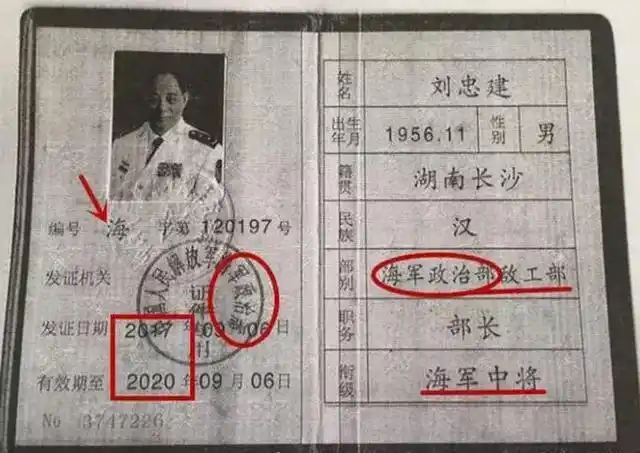 编号 海 字第 120197 号
发证机关
发证日期 2017 年 09 月 06 日
有效期至 2020 年 09 月 06 日
No 3747226
姓名 刘忠建
出生年月 1956.11 性别 男
籍贯 湖南长沙
民族 汉
部别 海军政治部敌工部
职务 部长
衔级 海军中将